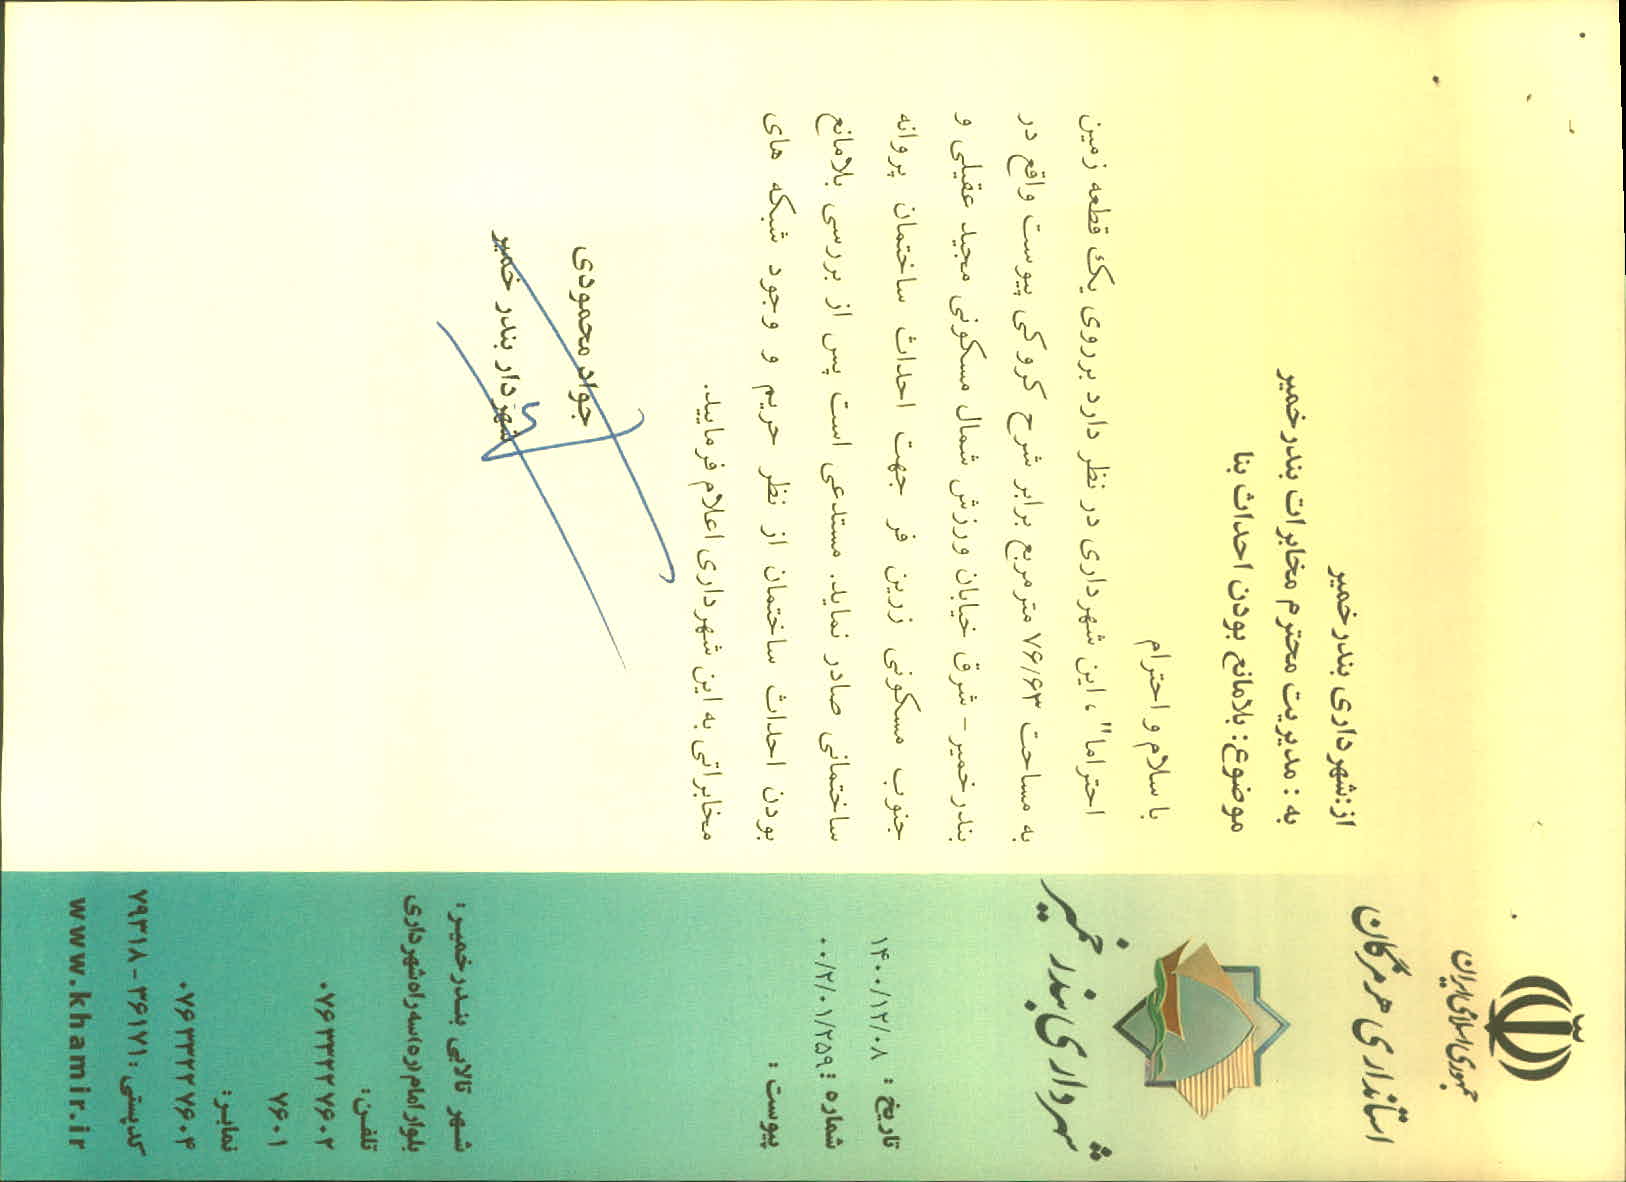 جمهوری اسلامی ایران
استانداری هرمزگان
شهرداری بندر خمیر
تاریخ : ۱۴۰۰/۱۲/۰۸
شماره : ۰۰/۲/۰۱/۲۵۹
پیوست :
از:شهرداری بندرخمیر
به : مدیریت محترم مخابرات بندرخمیر
موضوع: بلامانع بودن احداث بنا
با سلام و احترام
احتراما" ، این شهرداری در نظر دارد برروی یک قطعه زمین
به مساحت ۷۶/۶۳ مترمربع برابر شرح کروکی پیوست واقع در
بندرخمیر- شرق خیابان ورزش شمال مسکونی مجید عقیلی و
جنوب مسکونی زرین فر جهت احداث ساختمان پروانه
ساختمانی صادر نماید. مستدعی است پس از بررسی بلامانع
بودن احداث ساختمان از نظر حریم و وجود شبکه های
مخابراتی به این شهرداری اعلام فرمایید.
جواد محمودی
شهردار بندر خمیر
شهر تالابی بندرخمیر:
بلوار امام (ره) سه راه شهرداری
تلفن:
۰۷۶۳۳۲۲۷۶۰۲
۷۶۰۱
نمابر:
۰۷۶۳۳۲۲۷۶۰۴
کدپستی: ۳۶۱۷۱-۷۹۳۱۸
www.khamir.ir